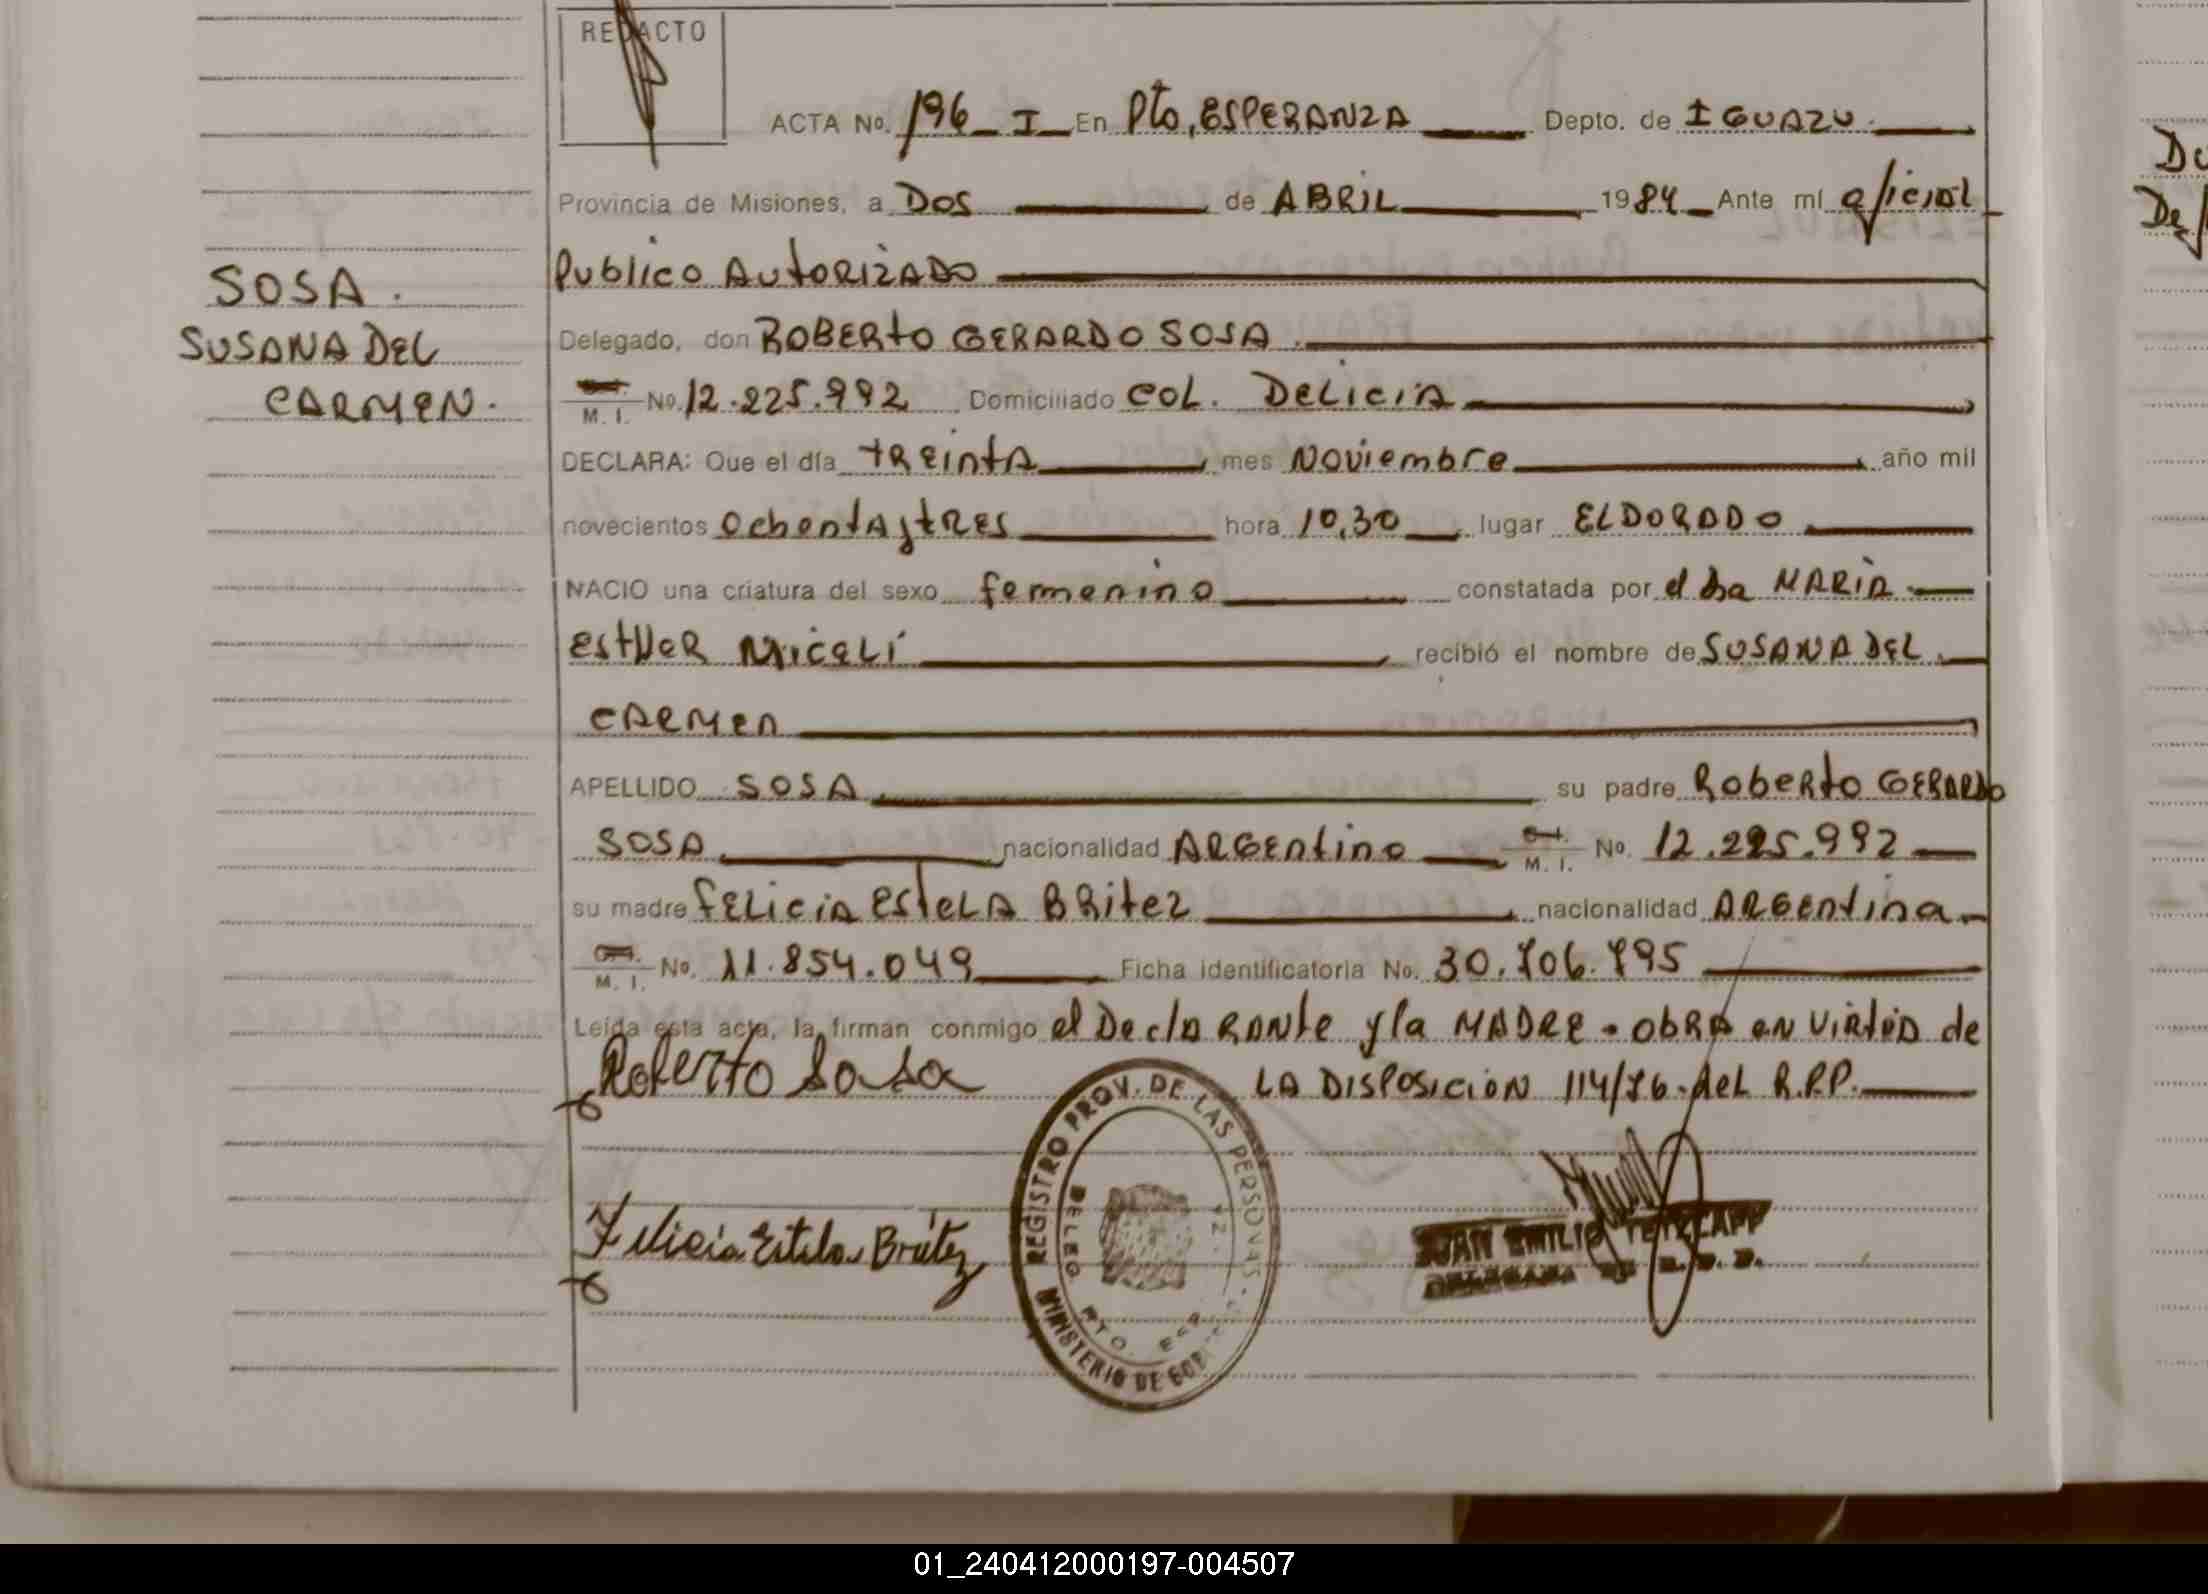 REDACTO
ACTA No. 196 I En Pto, ESPERANZA Depto. de IGUAZU.
Provincia de Misiones, a DOS de ABRIL 1984 Ante mí oficial
Publico AUTORIZADO
Delegado, don ROBERTO GERARDO SOSA
M. I. No. 12.225.992 Domiciliado COL. DELICIA
DECLARA: Que el día TREINTA mes NOVIEMBRE año mil
novecientos OchentAytRES hora 10,30 lugar ELDORADO
NACIO una criatura del sexo femenino constatada por el dra MARIA
EstHeR MiceLi recibió el nombre de SUSANA DEL
CARMEN
APELLIDO SOSA su padre Roberto GERARDO
SOSA nacionalidad ARGENtino M. I. No. 12.225.992
su madre FELICIA ESTELA BRITEZ nacionalidad ARGENtina
M. I. No. 11.854.049 Ficha identificatoria No. 30.706.795
Leída esta acta, la firman conmigo el DeclaRANte y la MADRE - ObRA en Virtud de
LA DISPOSICION 114/76 del R.P.P.
Roberto Sosa
Felicia Estela Britez
SOSA.
SUSANA DEL
CARMEN.
REGISTRO PROV. DE LAS PERSONAS
MINISTERIO DE
DELEG
PTO. ESP.
JUAN EMILIO
01_240412000197-004507